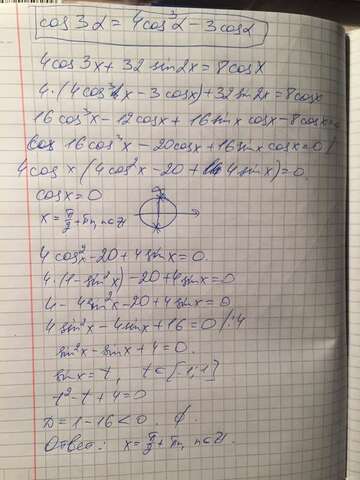 cos3α = 4cos³α - 3cosα
4cos3x + 32sin2x = 8cosx
4·(4cos³x - 3cosx) + 32sin2x = 8cosx
16cos³x - 12cosx + 16sinx cosx - 8cosx =
16cos³x - 20cosx + 16sinx cosx = 0
4cosx (4cos²x - 20 + 4sinx) = 0.
cosx = 0
x = π/2 + πn, n∈Z
4cos²x - 20 + 4sinx = 0.
4·(1 - sin²x) - 20 + 4sinx = 0
4 - 4sin²x - 20 + 4sinx = 0
4sin²x - 4sinx + 16 = 0 /:4
sin²x - sinx + 4 = 0.
sinx = t, t∈[-1;1]
t² - t + 4 = 0
D = 1 - 16 < 0. ∅.
Ответ: x = π/2 + πn, n∈Z.